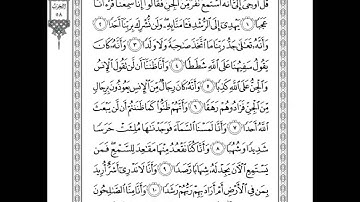 قُلْ أُوحِىَ إِلَىَّ أَنَّهُ ٱسْتَمَعَ نَفَرٌ مِّنَ ٱلْجِنِّ فَقَالُوٓا۟ إِنَّا سَمِعْنَا قُرْءَانًا
عَجَبًا ١ يَهْدِىٓ إِلَى ٱلرُّشْدِ فَـَٔامَنَّا بِهِۦ وَلَن نُّشْرِكَ بِرَبِّنَآ أَحَدًا ٢
وَأَنَّهُۥ تَعَـٰلَىٰ جَدُّ رَبِّنَا مَا ٱتَّخَذَ صَـٰحِبَةً وَلَا وَلَدًا ٣ وَأَنَّهُۥ كَانَ
يَقُولُ سَفِيهُنَا عَلَى ٱللَّهِ شَطَطًا ٤ وَأَنَّا ظَنَنَّآ أَن لَّن تَقُولَ ٱلْإِنسُ
وَٱلْجِنُّ عَلَى ٱللَّهِ كَذِبًا ٥ وَأَنَّهُۥ كَانَ رِجَالٌ مِّنَ ٱلْإِنسِ يَعُوذُونَ بِرِجَالٍ
مِّنَ ٱلْجِنِّ فَزَادُوهُمْ رَهَقًا ٦ وَأَنَّهُمْ ظَنُّوا۟ كَمَا ظَنَنتُمْ أَن لَّن يَبْعَثَ
ٱللَّهُ أَحَدًا ٧ وَأَنَّا لَمَسْنَا ٱلسَّمَآءَ فَوَجَدْنَـٰهَا مُلِئَتْ حَرَسًا
شَدِيدًا وَشُهُبًا ٨ وَأَنَّا كُنَّا نَقْعُدُ مِنْهَا مَقَـٰعِدَ لِلسَّمْعِ فَمَن
يَسْتَمِعِ ٱلْـَٔانَ يَجِدْ لَهُۥ شِهَابًا رَّصَدًا ٩ وَأَنَّا لَا نَدْرِىٓ أَشَرٌّ أُرِيدَ
بِمَن فِى ٱلْأَرْضِ أَمْ أَرَادَ بِهِمْ رَبُّهُمْ رَشَدًا ١٠ وَأَنَّا مِنَّا ٱلصَّـٰلِحُونَ